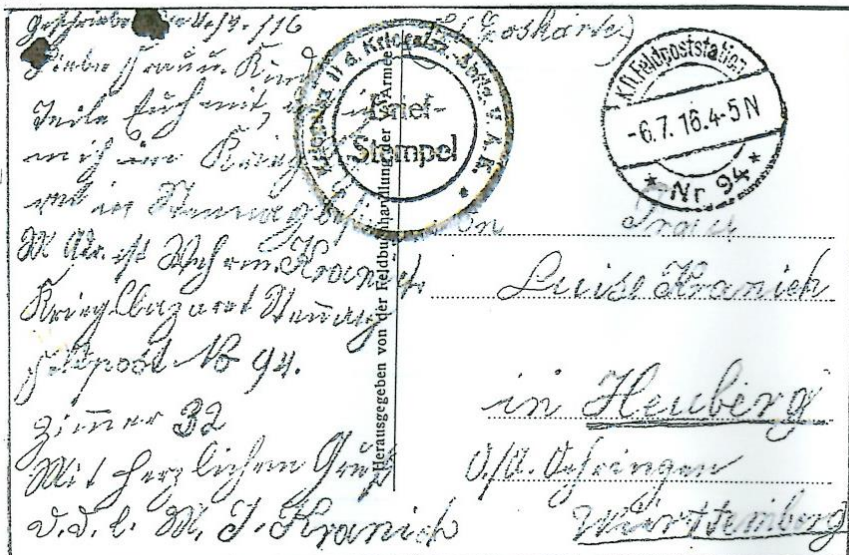 Geschrieben den 4/7. 116
Liebe Frau u. Kind
Teile Euch mit, das ich
mich im Kriegslaza
ret in Stenay befinde
M Adr. ist Wehrm. Kranich
Kriegslbazaret Stenay
Feldpost No 94.
Zimmer 32
Mit herzlichem Gruß
v. d. l. M. J. Kranich
Herausgegeben von der Feldbuchhandlung der 5. Armee
d. Kriegslaz. Abtlg. V. A.K. *
Brief-
Stempel
K.D. Feldpoststation
-6.7.16.4-5N
* Nr 94 *
An Frau
Luise Kranich
in Heuberg
O/A. Oehringen
Württemberg